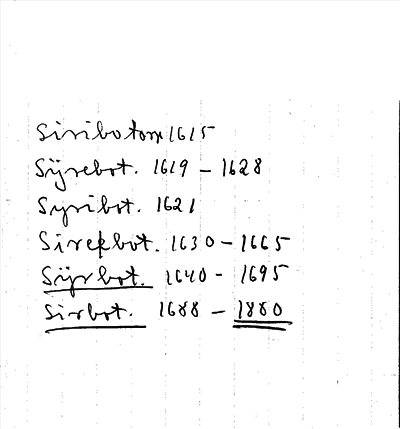 Siribotorp 1615
Sÿrebot. 1619 – 1628
Syribot. 1621
Sirekbot. 1630 – 1665
Sÿrbot. 1640 - 1695
Sirbot. 1688 – 1880